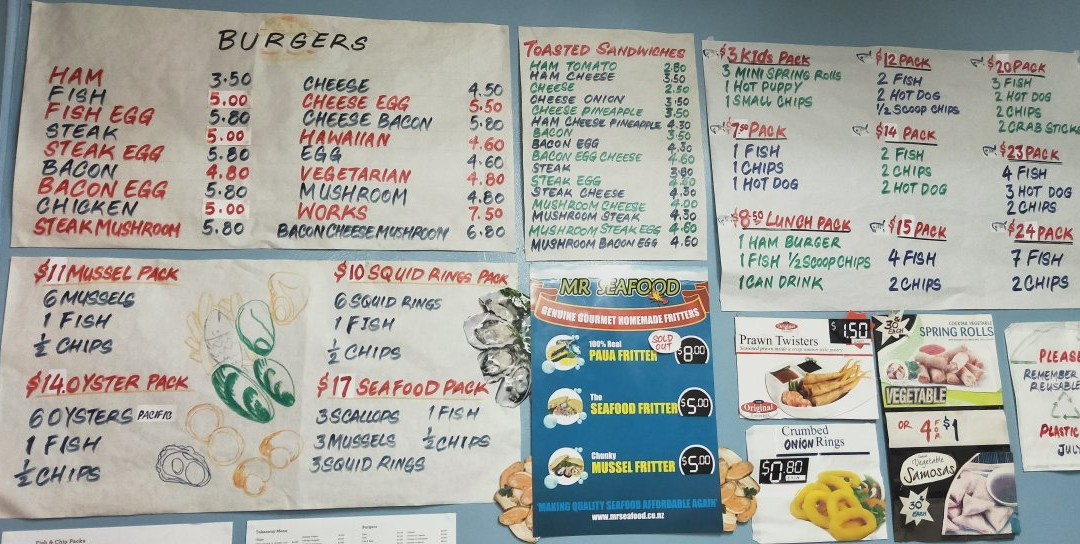 BURGERS
HAM 3.50
FISH 5.00
FISH EGG 5.80
STEAK 5.00
STEAK EGG 5.80
BACON 4.80
BACON EGG 5.80
CHICKEN 5.00
STEAK MUSHROOM 5.80
CHEESE 4.50
CHEESE EGG 5.50
CHEESE BACON 5.80
HAWAIIAN 4.60
EGG 4.60
VEGETARIAN 4.80
MUSHROOM 4.80
WORKS 7.50
BACON CHEESE MUSHROOM 6.80
TOASTED SANDWICHES
HAM TOMATO 2.80
HAM CHEESE 3.50
CHEESE 2.50
CHEESE ONION 3.50
CHEESE PINEAPPLE 3.50
HAM CHEESE PINEAPPLE 4.30
BACON 3.50
BACON EGG 4.30
BACON EGG CHEESE 4.60
STEAK 3.80
STEAK EGG
STEAK CHEESE 4.30
MUSHROOM CHEESE 4.00
MUSHROOM STEAK 4.30
MUSHROOM STEAK EGG 4.60
MUSHROOM BACON EGG 4.60
$3 Kid's PACK
3 MINI SPRING Rolls
1 HOT PUPPY
1 SMALL CHIPS
$7.50 PACK
1 FISH
1 CHIPS
1 HOT DOG
$8.50 LUNCH PACK
1 HAM BURGER
1 FISH 1/2 SCOOP CHIPS
1 CAN DRINK
$12 PACK
2 FISH
2 HOT DOG
1/2 SCOOP CHIPS
$14 PACK
2 FISH
2 CHIPS
2 HOT DOG
$15 PACK
4 FISH
2 CHIPS
$20 PACK
5 FISH
2 HOT DOG
2 CHIPS
2 CRAB STICK
$23 PACK
4 FISH
3 HOT DOG
2 CHIPS
$24 PACK
7 FISH
2 CHIPS
$11 MUSSEL PACK
6 MUSSELS
1 FISH
1/2 CHIPS
$14.0 OYSTER PACK
6 OYSTERS PACIFIC
1 FISH
1/2 CHIPS
$10 SQUID RINGS PACK
6 SQUID RINGS
1 FISH
1/2 CHIPS
$17 SEAFOOD PACK
3 SCALLOPS 1 FISH
3 MUSSELS 1/2 CHIPS
3 SQUID RINGS
MR SEAFOOD
GENUINE GOURMET HOMEMADE FRITTERS
100% Real
PAUA FRITTER $8.00
SOLD OUT
The
SEAFOOD FRITTER $5.00
Chunky
MUSSEL FRITTER $5.00
'MAKING QUALITY SEAFOOD AFFORDABLE AGAIN'
www.mrseafood.co.nz
Original
Prawn Twisters
$1.50
Original
Crumbed
ONION Rings
$0.80
30¢
EACH
COCKTAIL VEGETABLE
SPRING ROLLS
VEGETABLE
OR 4 FOR $1
Vegetable
SAMOSAS
30¢
EACH
PLEASE
REMEMBER
REUSABLE
PLASTIC
JULY
Fish & Chip Packs
Takeaway Menu
Burgers